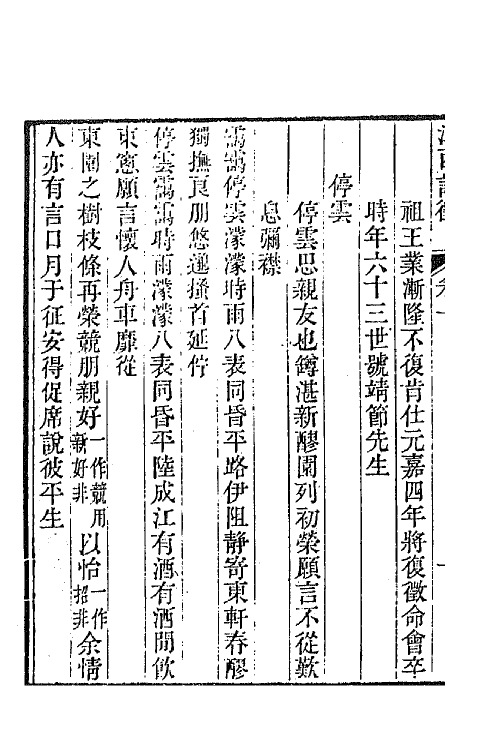 祖王業漸隆不復肯仕元嘉四年將復徵命會卒
時年六十三世號靖節先生
停雲
停雲思親友也罇湛新醪園列初榮願言不從歎
息彌襟
靄靄停雲濛濛時雨八表同昏平路伊阻靜寄東軒春醪
獨撫良朋悠邈搔首延佇
停雲靄靄時雨濛濛八表同昏平陸成江有酒有酒閒飲
東窻願言懷人舟車靡從
東園之樹枝條再榮競朋親好一作競用新好非以怡一作招非余情
人亦有言日月于征安得促席說彼平生